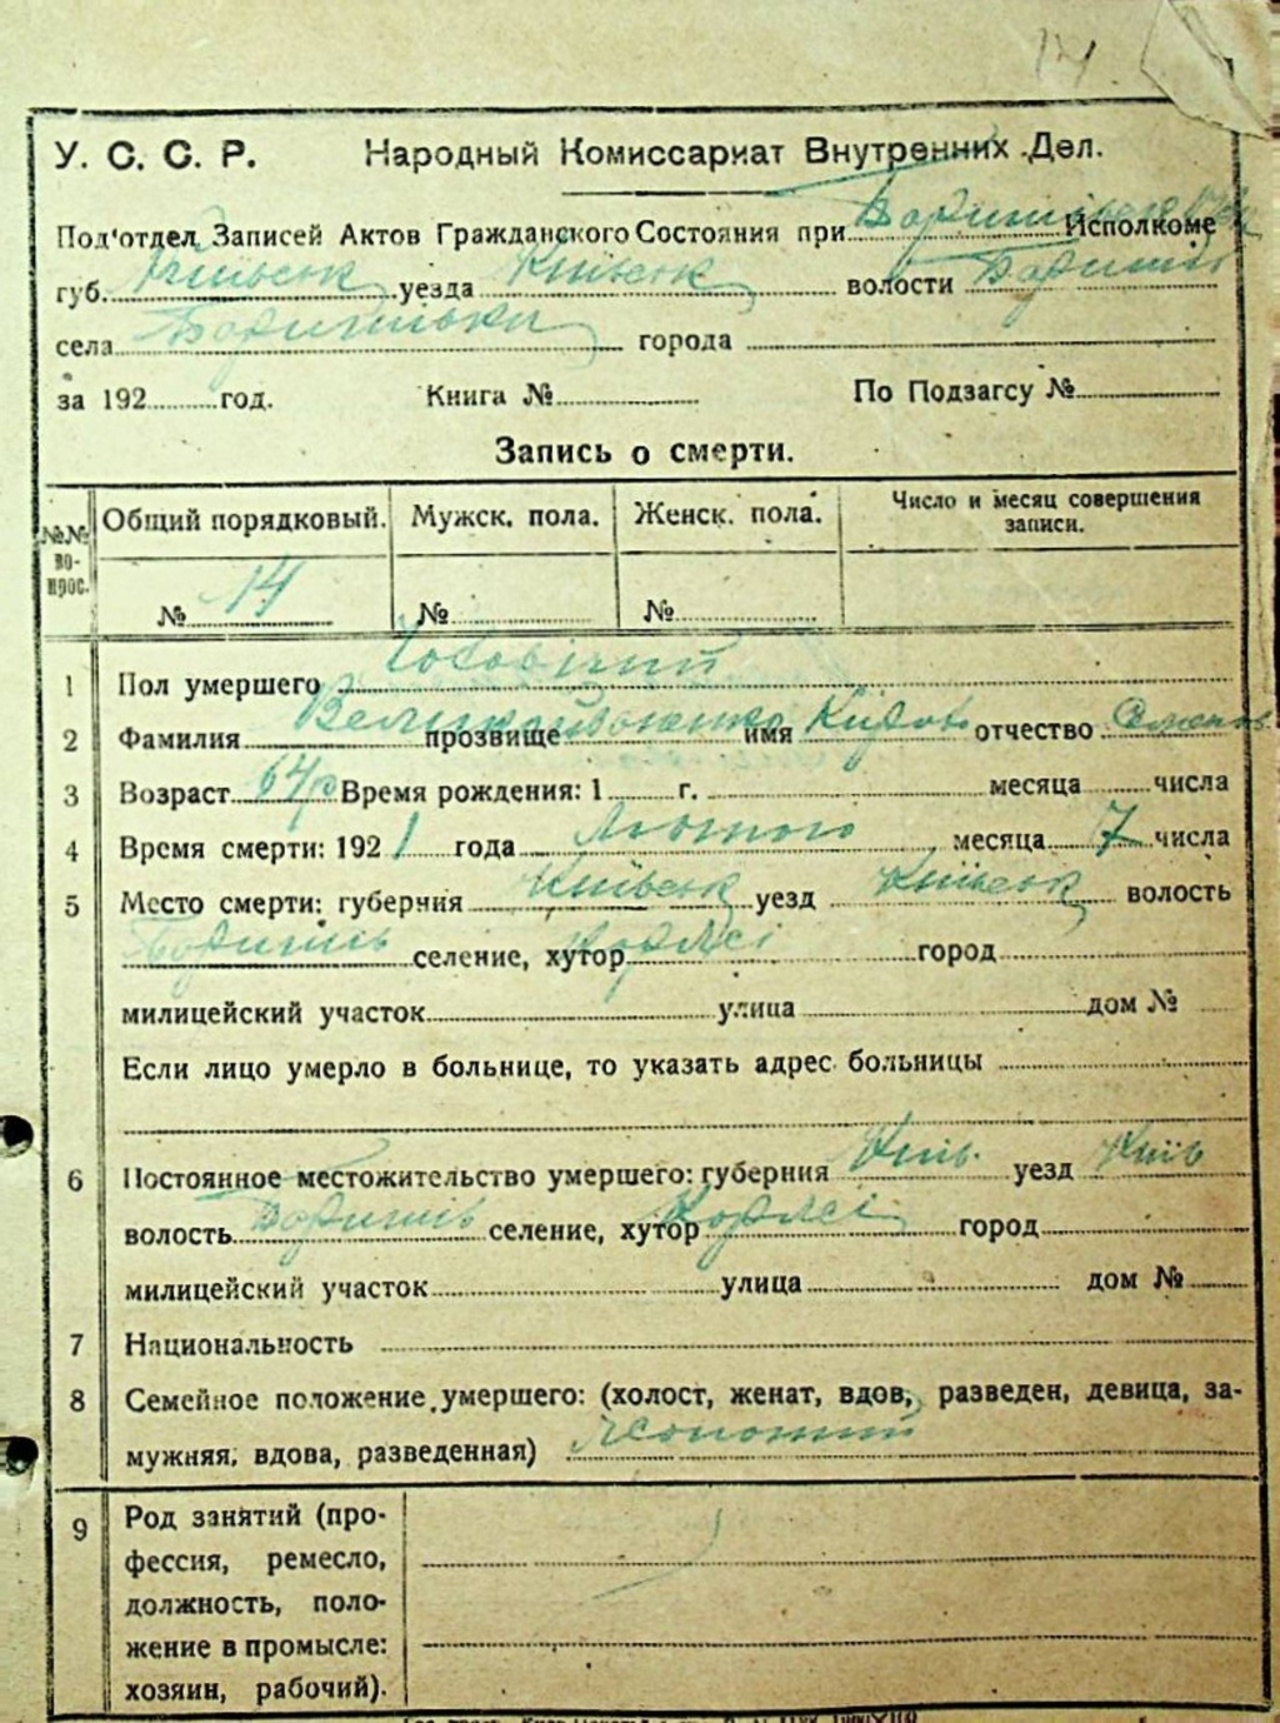 14.
У. С. С. Р. Народный Комиссариат Внутренних Дел.
Под'отдел Записей Актов Гражданского Состояния при Исполкоме
губ. Київськ уезда Київськ волости Бориспіл
села города
за 192 год. Книга № По Подзагсу №
Запись о смерти.
№№ вопрос. Общий порядковый. Мужск. пола. Женск. пола. Число и месяц совершения записи.
№ 14 № №
1 Пол умершего Чоловічий
2 Фамилия прозвище имя отчество
3 Возраст 64 р Время рождения: 1 г. месяца числа
4 Время смерти: 1921 года Лютого месяца 7 числа
5 Место смерти: губерния Київськ уезд Київськ волость
селение, хутор город
милицейский участок улица дом №
Если лицо умерло в больнице, то указать адрес больницы
6 Постоянное местожительство умершего: губерния Київ. уезд Київ
волость селение, хутор город
милицейский участок улица дом №
7 Национальность
8 Семейное положение умершего: (холост, женат, вдов, разведен, девица, за-
мужняя, вдова, разведенная)
9 Род занятий (про-
фессия, ремесло,
должность, поло-
жение в промысле:
хозяин, рабочий).